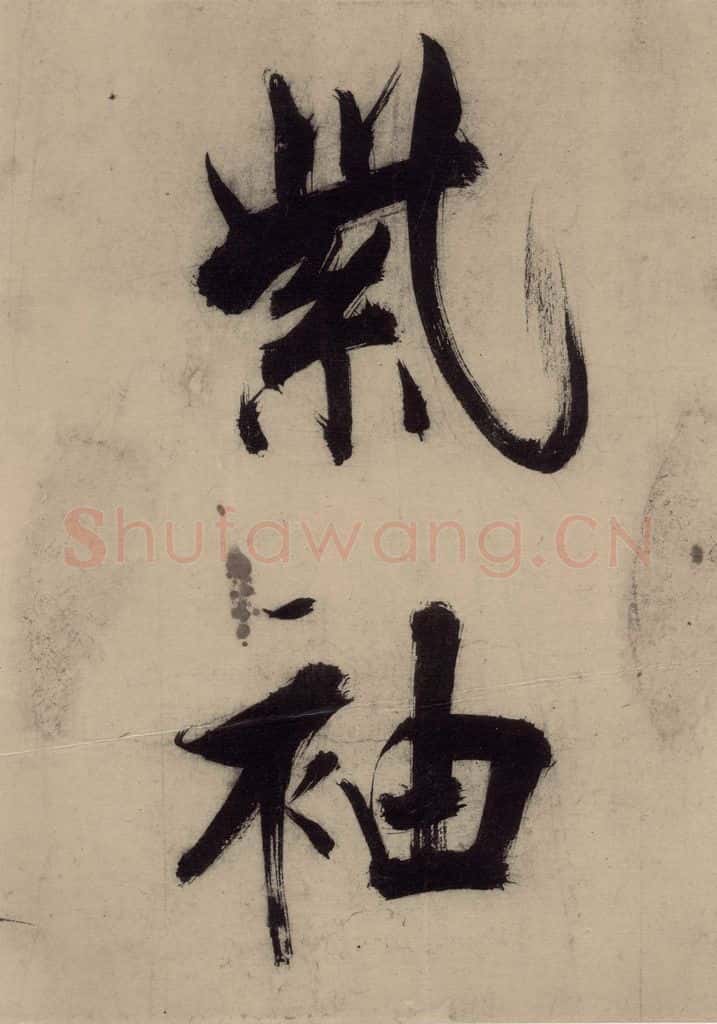 紫袖
Shufawang.CN